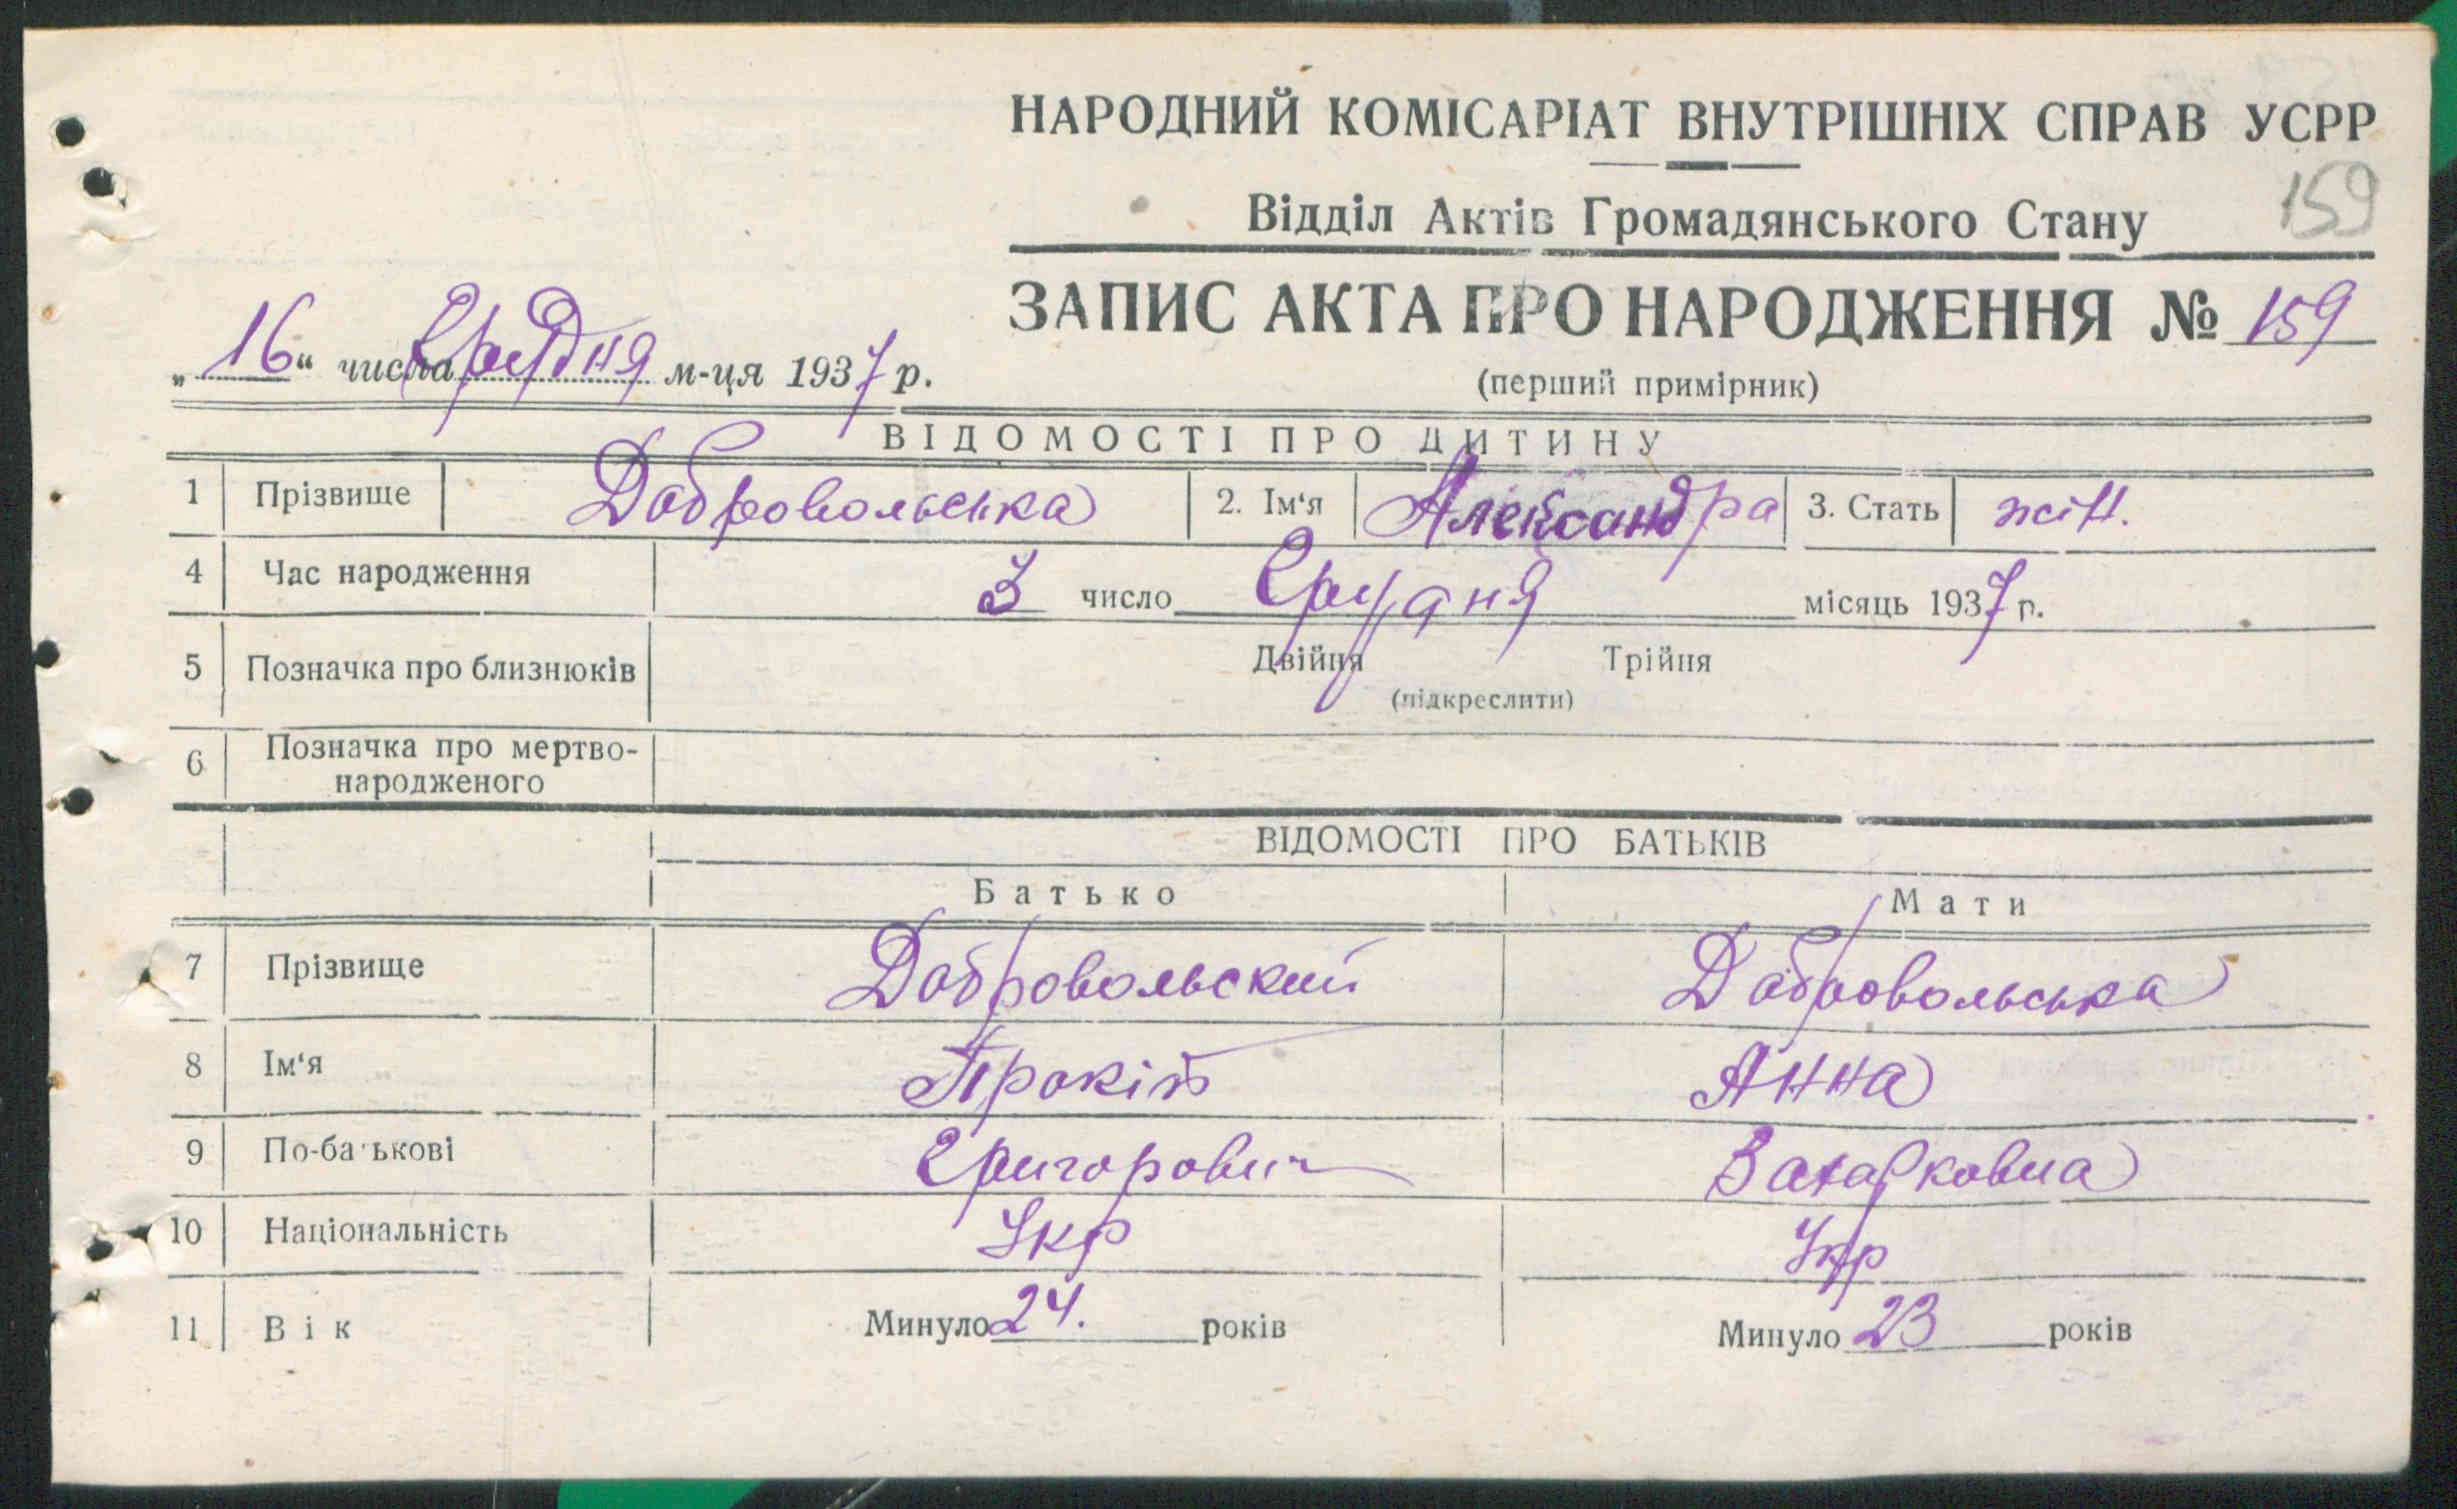 НАРОДНИЙ КОМІСАРІАТ ВНУТРІШНІХ СПРАВ УСРР
159
Відділ Актів Громадянського Стану
ЗАПИС АКТА ПРО НАРОДЖЕННЯ № 159
„16“ числа Грудня м-ця 1937 р.
(перший примірник)
ВІДОМОСТІ ПРО ДИТИНУ
1 Прізвище Добровольська 2. Ім‘я Александра 3. Стать жін.
4 Час народження 3 число Грудня місяць 1937 р.
5 Позначка про близнюків Двійня Трійня
(підкреслити)
6 Позначка про мертво-
народженого
ВІДОМОСТІ ПРО БАТЬКІВ
Батько Мати
7 Прізвище Добровольский Добровольська
8 Ім‘я Прокіп Анна
9 По-батькові Григорович
10 Національність Укр Укр
11 Вік Минуло 24. років Минуло 23 років